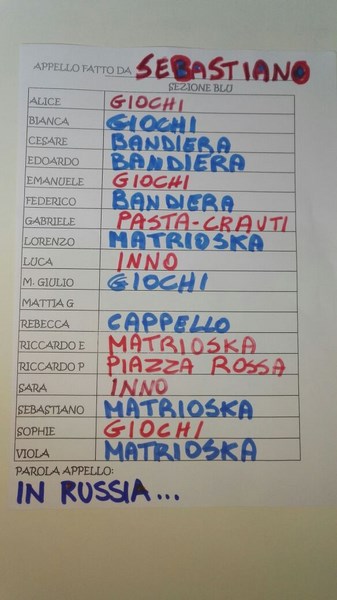 APPELLO FATTO DA SEBASTIANO
SEZIONE BLU
ALICE GIOCHI
BIANCA GIOCHI
CESARE BANDIERA
EDOARDO BANDIERA
EMANUELE GIOCHI
FEDERICO BANDIERA
GABRIELE PASTA-CRAUTI
LORENZO MATRIOSKA
LUCA INNO
M. GIULIO GIOCHI
MATTIA G
REBECCA CAPPELLO
RICCARDO E MATRIOSKA
RICCARDO P PIAZZA ROSSA
SARA INNO
SEBASTIANO MATRIOSKA
SOPHIE GIOCHI
VIOLA MATRIOSKA
PAROLA APPELLO:
IN RUSSIA...